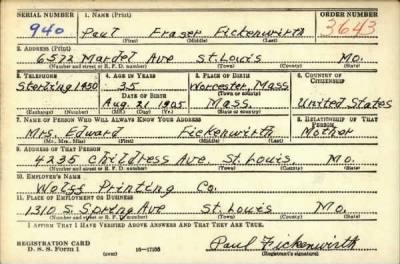 SERIAL NUMBER 1. NAME (Print) ORDER NUMBER
940 Paul Fraser Fickenwirth 3643
(First) (Middle) (Last)
2. ADDRESS (Print)
6522 Mardel Ave St. Louis Mo.
(Number and street or R. F. D. number) (Town) (County) (State)
3. TELEPHONE 4. AGE IN YEARS 5. PLACE OF BIRTH 6. COUNTRY OF CITIZENSHIP
Sterling 1930 35 Worcester, Mass
DATE OF BIRTH (Town or county)
Aug. 21 1905 Mass. United States
(Mo.) (Day) (Yr.) (State or country)
7. NAME OF PERSON WHO WILL ALWAYS KNOW YOUR ADDRESS 8. RELATIONSHIP OF THAT PERSON
Mrs. Edward Fickenwirth Mother
(Mr., Mrs., Miss) (First) (Middle) (Last)
9. ADDRESS OF THAT PERSON
4235 Childress Ave. St. Louis, Mo.
(Number and street or R. F. D. number) (Town) (County) (State)
10. EMPLOYER'S NAME
Wolff Printing Co.
11. PLACE OF EMPLOYMENT OR BUSINESS
1310 S. Spring Ave St. Louis Mo.
(Number and street or R. F. D. number) (Town) (County) (State)
I AFFIRM THAT I HAVE VERIFIED ABOVE ANSWERS AND THAT THEY ARE TRUE.
REGISTRATION CARD
D. S. S. Form 1 (over) Paul Fickenwirth
(Registrant's signature)